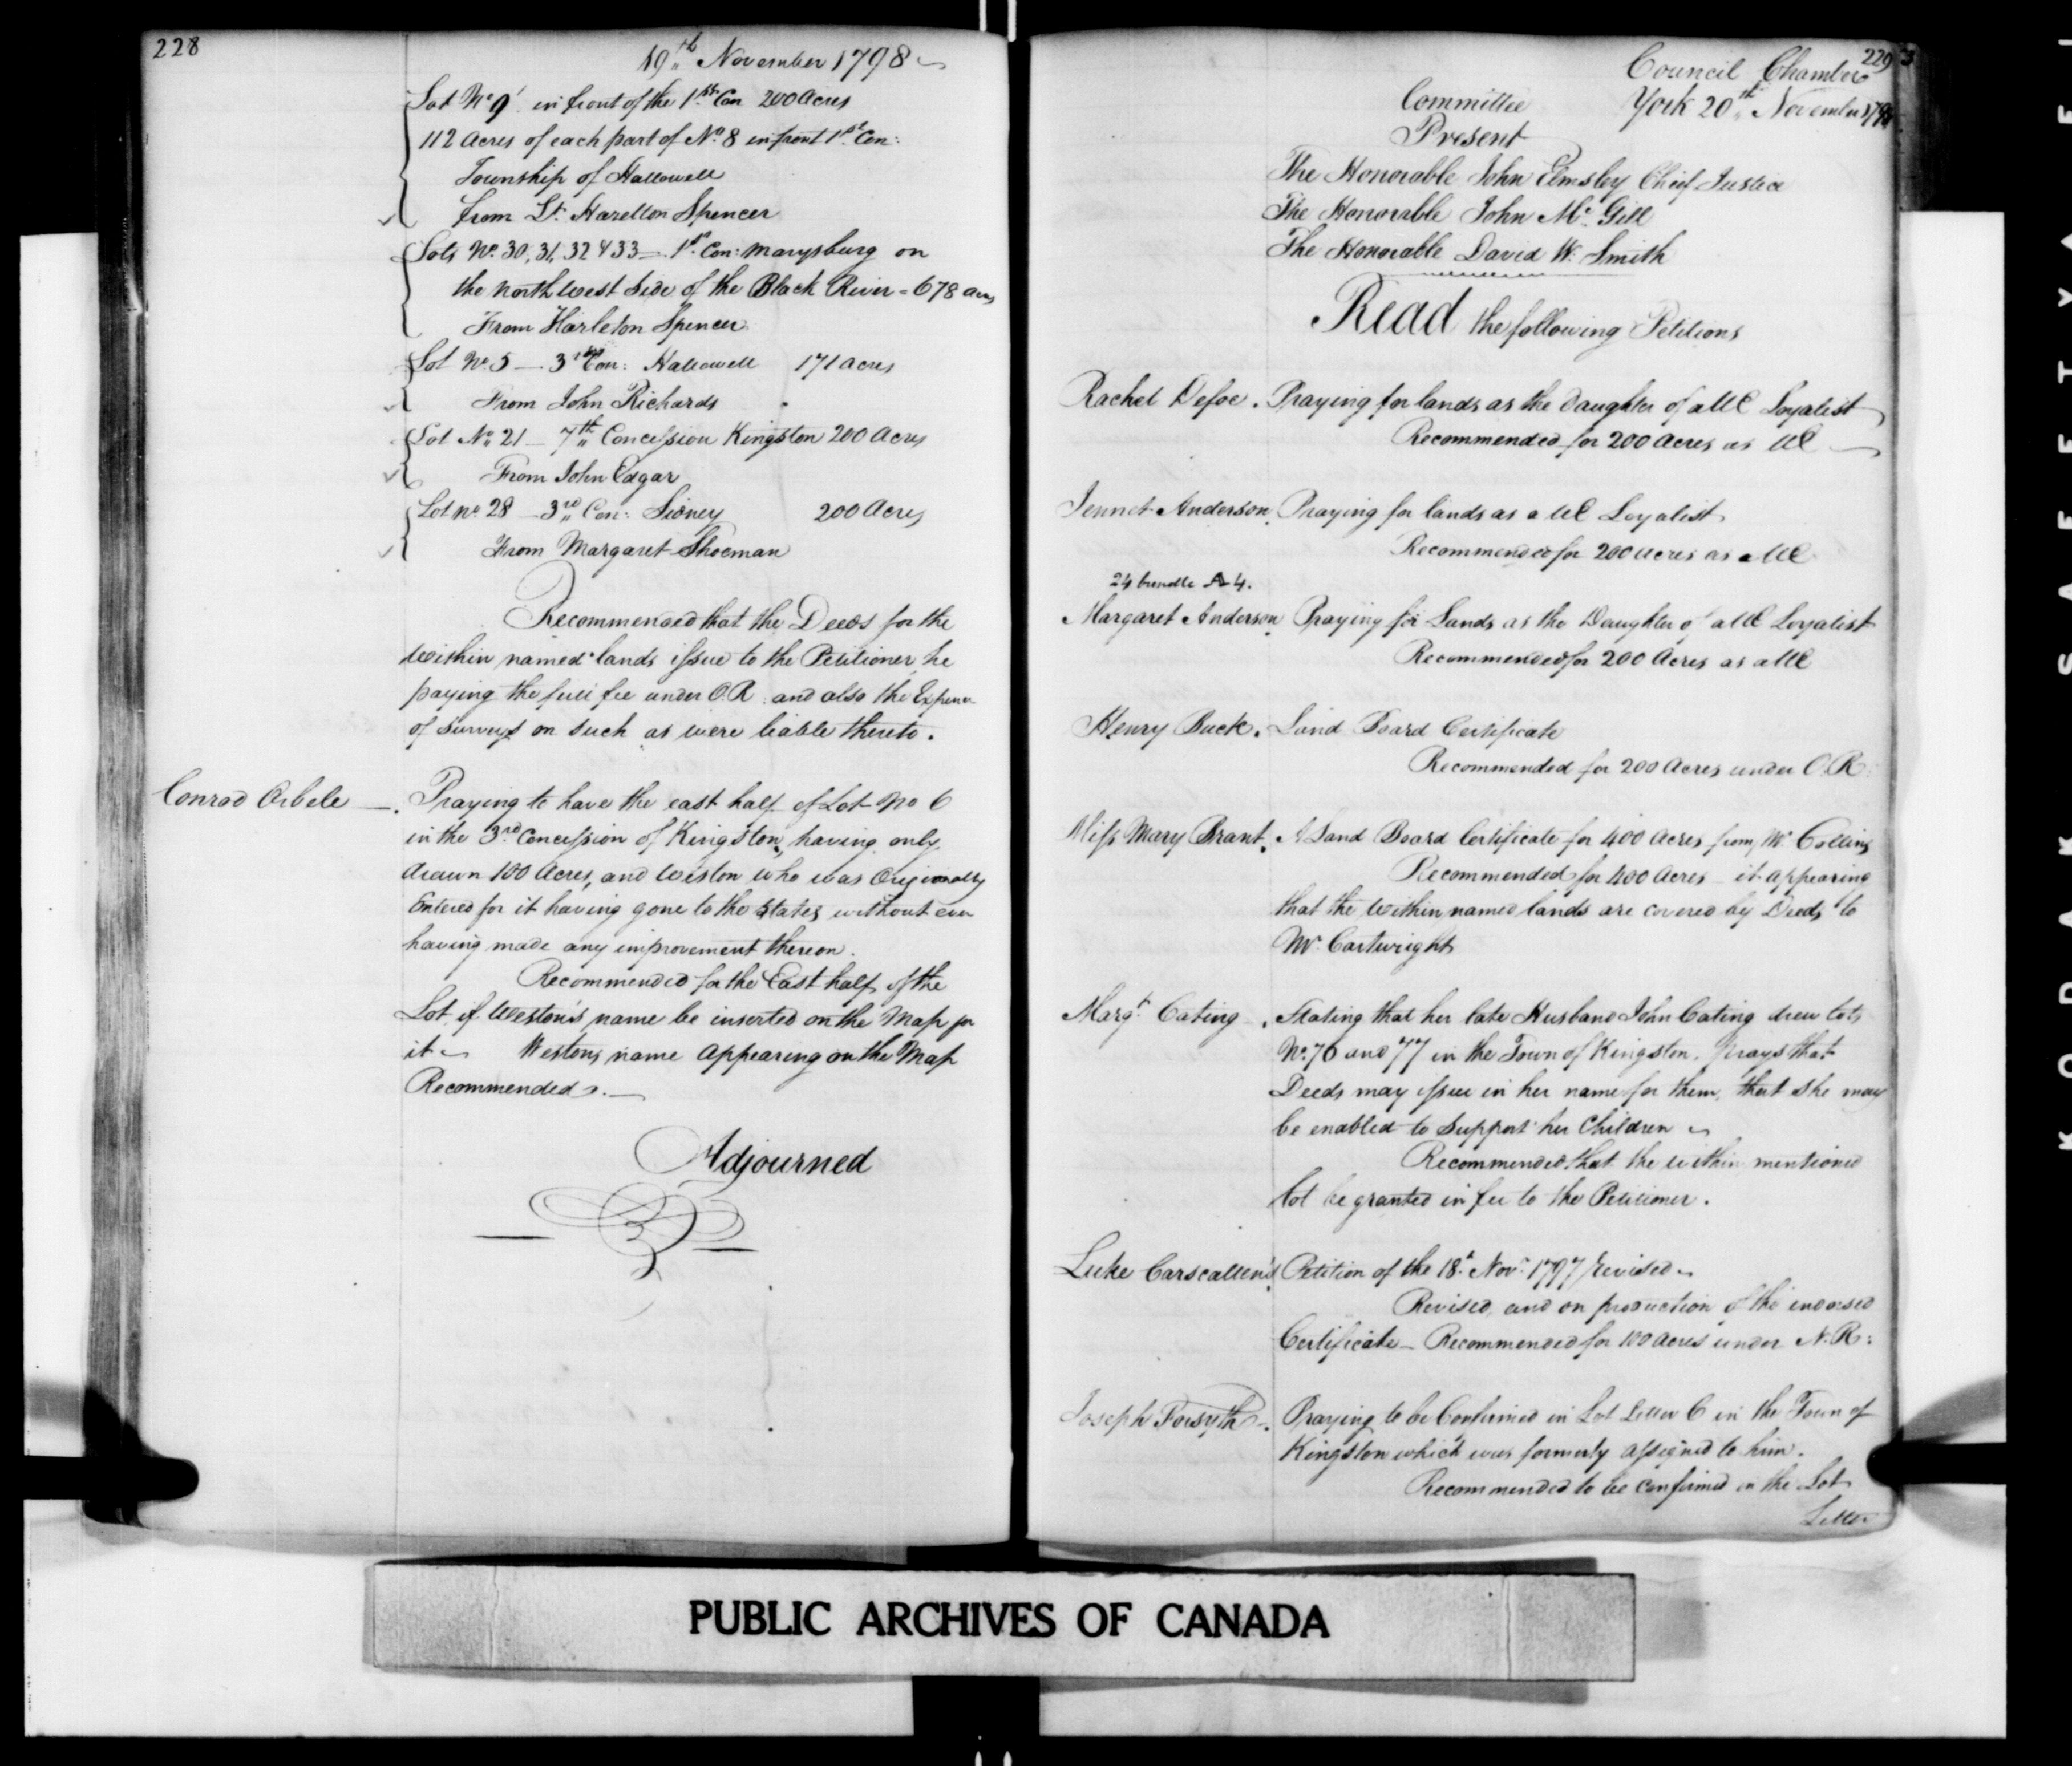 228
19th November 1798
Lot No 9 in front of the 1st Con 200 Acres
112 Acres of each part of No 8 in front 1st Con:
Township of Hallowell
from Lt. Hazelton Spencer
Lots No 30, 31, 32 & 33 — 1st Con: Marysburg on
the north west side of the Black River = 678 acres
From Harleton Spencer
Lot No 5 — 3rd Con: Hallowell 171 acres
From John Richards
Lot No 21 — 7th Concession Kingston 200 Acres
From John Edgar
Lot no 28 — 3rd Con: Sidney 200 Acres
From Margaret Shoeman
Recommended that the Deeds for the
within named lands issue to the Petitioner he
paying the full fee under O.R. and also the Expence
of surveys on such as were liable thereto.
Conrad Asbele — Praying to have the east half of Lot No 6
in the 3rd Concession of Kingston, having only
drawn 100 Acres, and Weston who was Originally
Entered for it having gone to the States without ever
having made any improvement thereon.
Recommended for the East half of the
Lot if Weston's name be inserted on the Map for
it — Westons name appearing on the Map
Recommended. —
Adjourned
229
Council Chamber
Committee York 20th November 1798
Present
The Honorable John Elmsley Chief Justice
The Honorable John Mc Gill
The Honorable David W. Smith
Read the following Petitions
Rachel Defoe. Praying for lands as the daughter of a UE Loyalist
Recommended for 200 Acres as UE —
Jennet Anderson. Praying for lands as a UE Loyalist
Recommended for 200 acres as a UE
24 bundle A 4.
Margaret Anderson. Praying for Lands as the Daughter of a UE Loyalist
Recommended for 200 Acres as a UE
Henry Buck. Land Board Certificate
Recommended for 200 Acres under O.R:
Miss Mary Brant. A Land Board Certificate for 400 Acres from Mr Collins
Recommended for 400 Acres — it appearing
that the within named lands are covered by Deeds to
Mr. Cartwright
Margt Cating. Stating that her late Husband John Cating drew lots
No. 76 and 77 in the Town of Kingston. prays that
Deeds may issue in her name for them, that she may
be enabled to support her Children
Recommended that the within mentioned
lot be granted in fee to the Petitioner.
Luke Carscallen's Petition of the 18th Novr 1797 revised
Revised, and on production of the endorsed
Certificate — Recommended for 100 Acres under N.R:
Joseph Forsyth. Praying to be Confirmed in Lot Letter C in the Town of
Kingston which was formerly assigned to him.
Recommended to be confirmed in the Lot
Letter
PUBLIC ARCHIVES OF CANADA